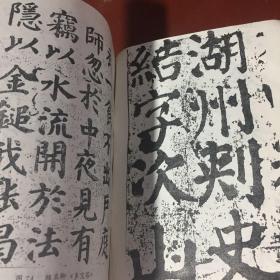 湖州刺史
結字次山
不出戶庭
師忽於中夜見有
竊以水流開於法
隱以金鎚我